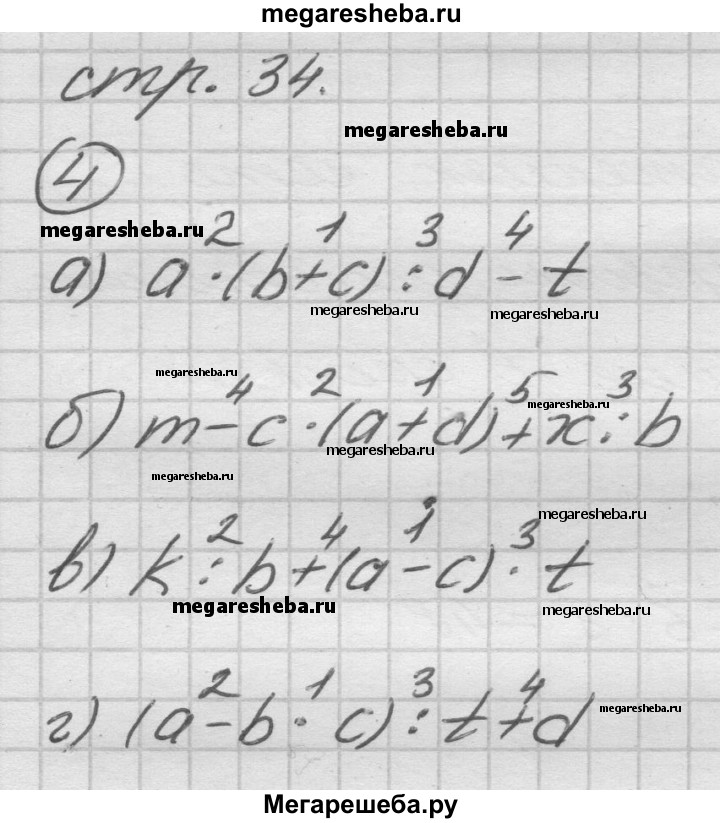 megaresheba.ru
стр. 34.
megaresheba.ru
4
megaresheba.ru
2 1 3 4
а) a · (b + c) : d - t
megaresheba.ru megaresheba.ru
megaresheba.ru
4 2 1 5 3
megaresheba.ru
б) m - c · (a + d) + x : b
megaresheba.ru
megaresheba.ru
megaresheba.ru
2 4 1 3
в) k : b + (a - c) · t
megaresheba.ru megaresheba.ru
2 1 3 4
г) (a - b · c) : t + d
megaresheba.ru
Мегарешеба.ру